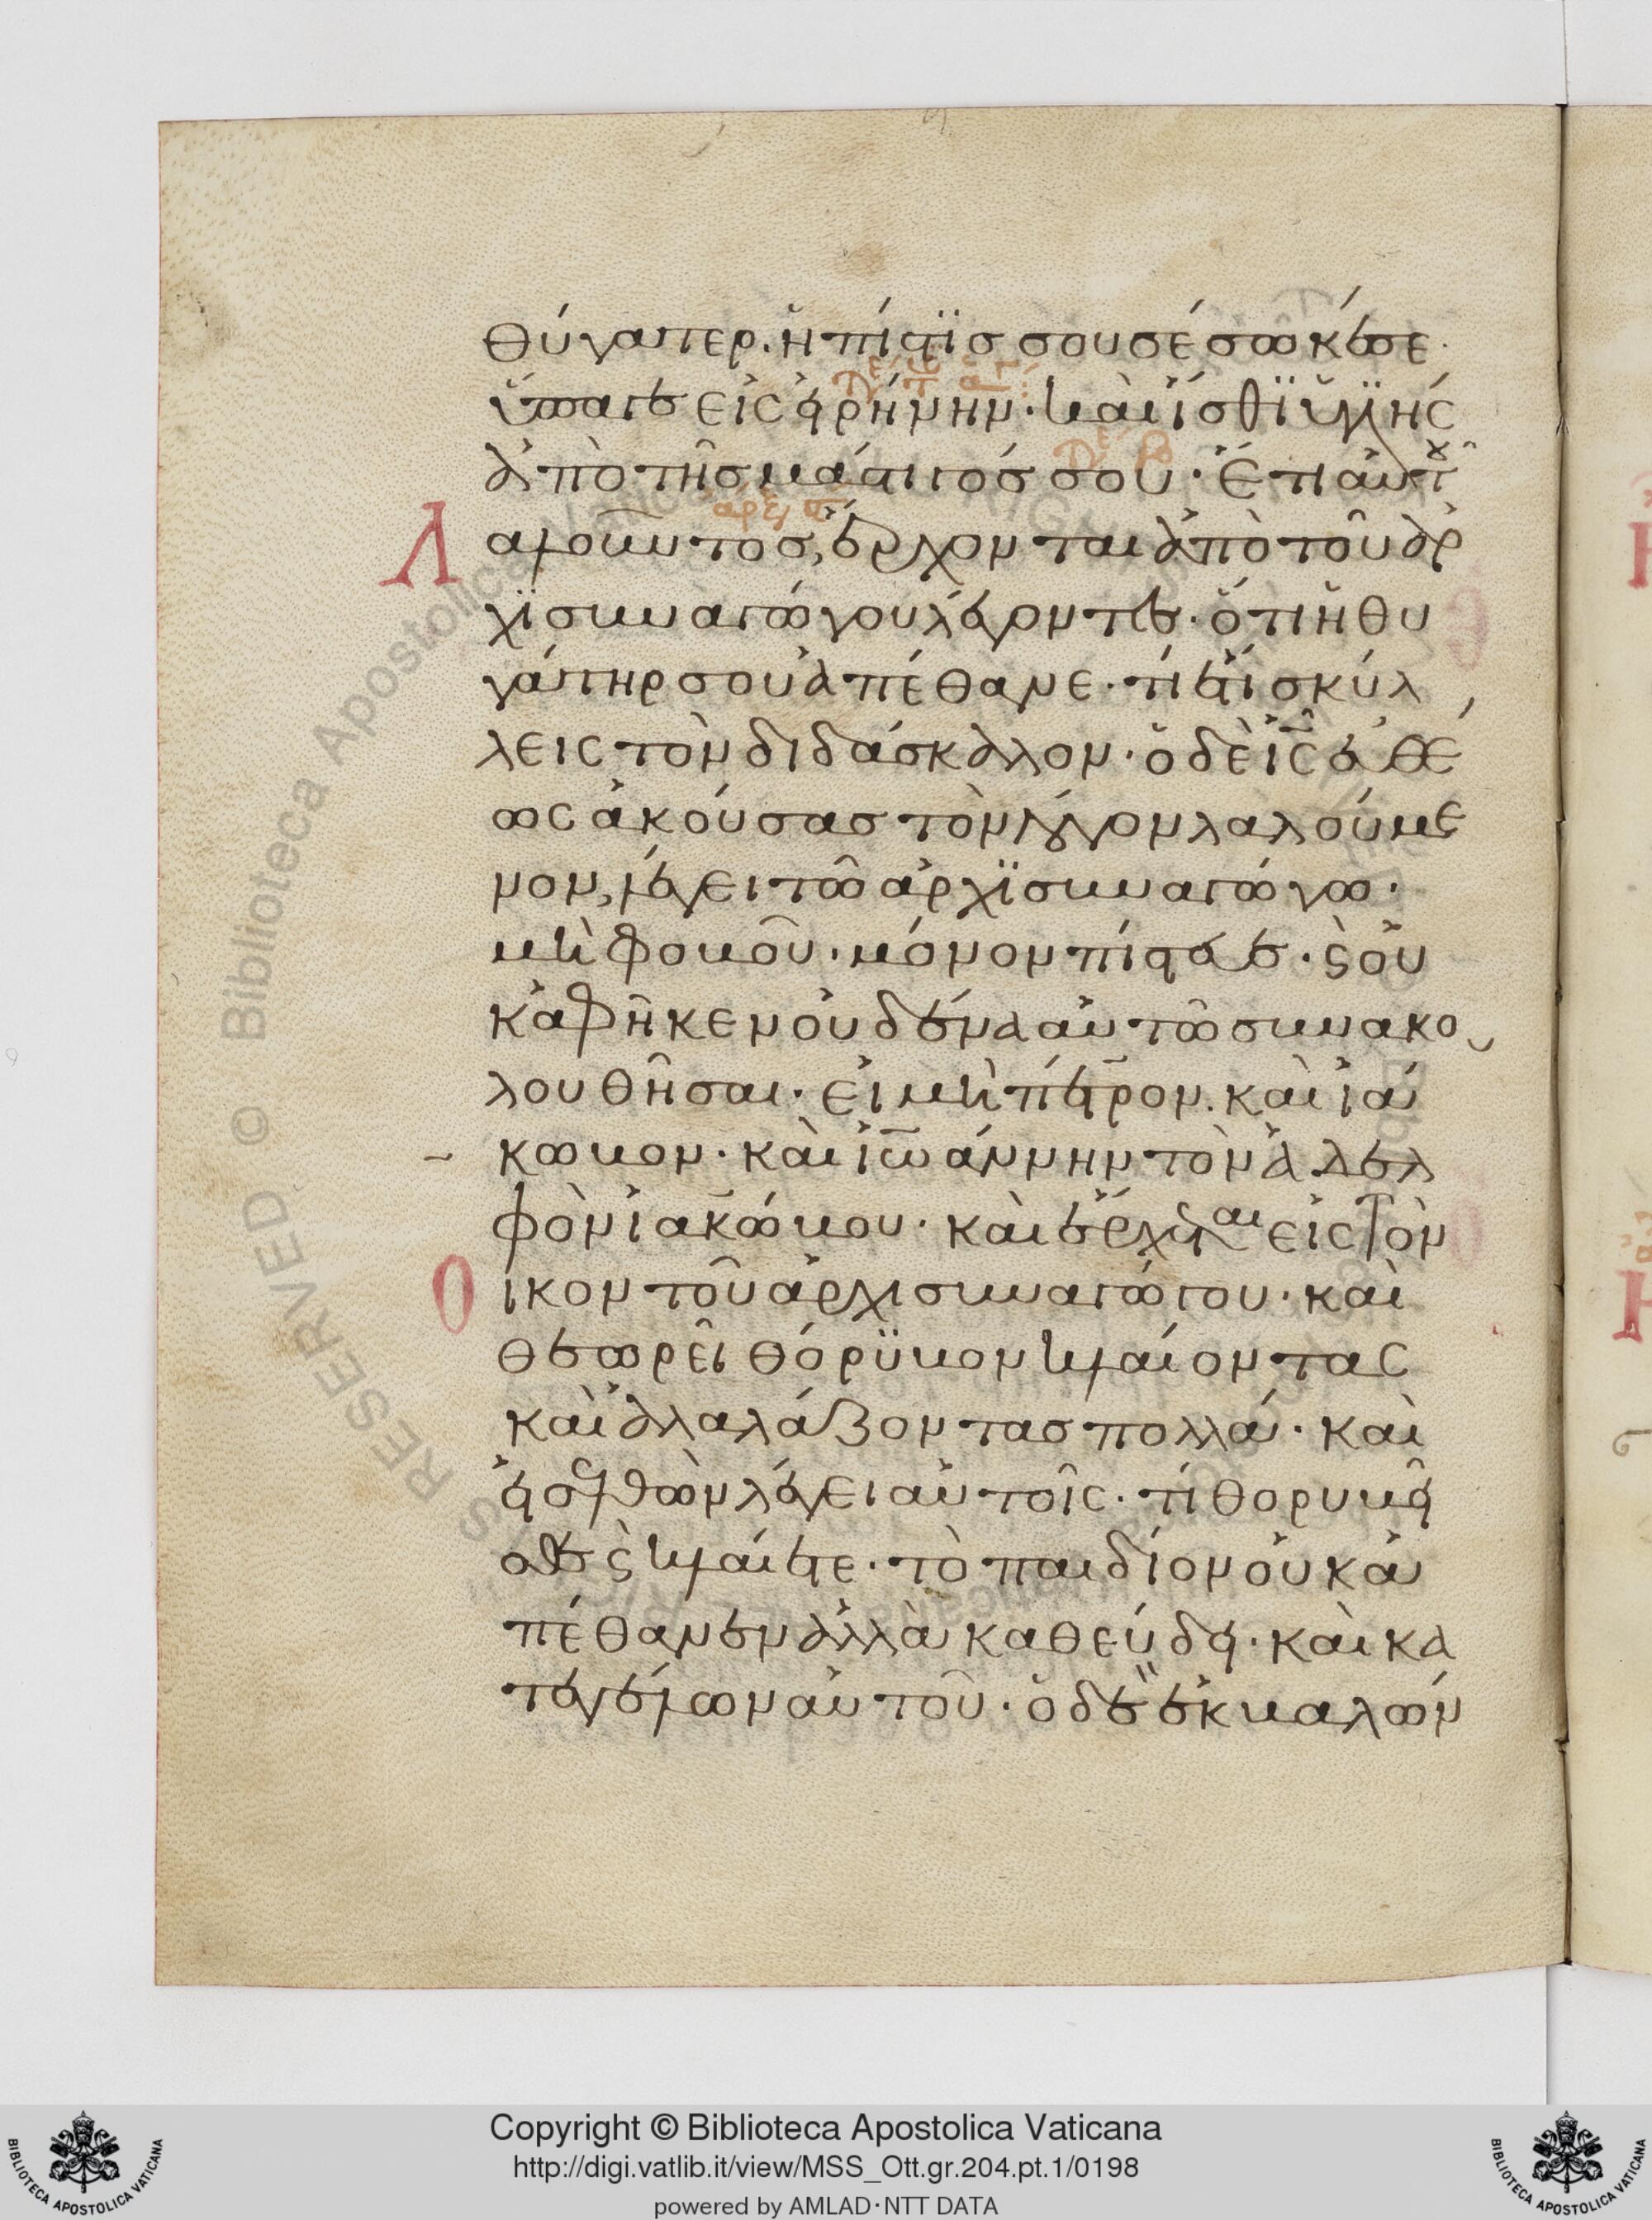 θύγατερ. ἡ πίστϊς σου σέσωκέ σε·
ὕπαγε εἰς εἰρήνην· καὶ ἴσθϊ ὑγϊὴς
ἀπὸ τῆς μάστιγός σου· Ἔτι αὐτοῦ
Λαλοῦντος, ἔρχονται ἀπὸ τοῦ ἀρ
χϊσυναγώγου λέγοντες· ὅτι ἡ θυ
γάτηρ σου ἀπέθανε· τί ἔτι σκύλ
λεις τὸν διδάσκαλον· ὁ δὲ ις εὐθέ
ως ἀκούσας τὸν λόγον λαλούμε
νον, λέγει τῶ ἀρχϊσυναγώγω·
μὴ φοβοῦ· μόνον πίστευε· ϛ οὐ
κ ἀφῆκεν οὐδένα αὐτῶ συνακο
λουθῆσαι· εἰ μὴ πέτρον. καὶ ἰά
κωβον· καὶ ἰωάννην τὸν ἀδελ
φὸν ἰακώβου· καὶ ἔρχεται εἰς τὸν
Οἶκον τοῦ ἀρχισυναγώγου· καὶ
θεωρεῖ θόρϋβον κλαίοντας
καὶ ἀλαλάζοντας πολλά· καὶ
εἰσελθὼν λέγει αὐτοῖς· τί θορυβεῖ
σθε ϛ κλαίετε· τὸ παιδίον οὐκ ἀ
πέθανεν ἀλλὰ καθεύδει· καὶ κα
τεγέλων αὐτοῦ· ὁ δὲ ἐκβαλὼν
Copyright © Biblioteca Apostolica Vaticana
http://digi.vatlib.it/view/MSS_Ott.gr.204.pt.1/0198
powered by AMLAD·NTT DATA